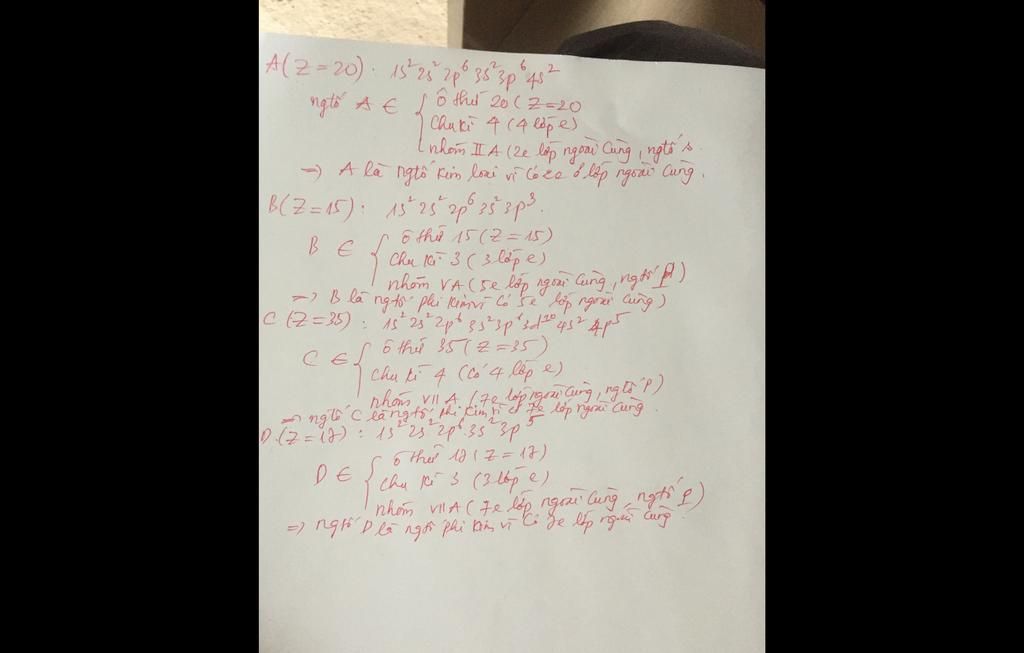 A(Z=20). 1s² 2s² 2p⁶ 3s² 3p⁶ 4s²
ngtố A ∈ { Ô thứ 20 (Z=20
Chu kì 4 (4 lớp e)
nhóm IIA (2e lớp ngoài cùng, ngtố s.
→ A là ngtố kim loại vì có 2e ở lớp ngoài cùng.
B(Z=15): 1s² 2s² 2p⁶ 3s² 3p³.
B ∈ { ô thứ 15 (Z=15)
Chu kì 3 (3 lớp e)
nhóm VA (5e lớp ngoài cùng, ngtố p)
→ B là ngtố phi kim vì có 5e lớp ngoài cùng)
C (Z=35): 1s² 2s² 2p⁶ 3s² 3p⁶ 3d¹⁰ 4s² 4p⁵
C ∈ { ô thứ 35 (Z=35)
Chu kì 4 (có 4 lớp e)
nhóm VII A (7e lớp ngoài cùng, ngtố p)
→ ngtố C là ngtố phi kim vì có 7e lớp ngoài cùng.
D.(Z=17): 1s² 2s² 2p⁶ 3s² 3p⁵
D ∈ { ô thứ 17 (Z=17)
Chu kì 3 (3 lớp e)
nhóm VIIA (7e lớp ngoài cùng, ngtố p)
=> ngtố D là ngtố phi kim vì có 7e lớp ngoài cùng.